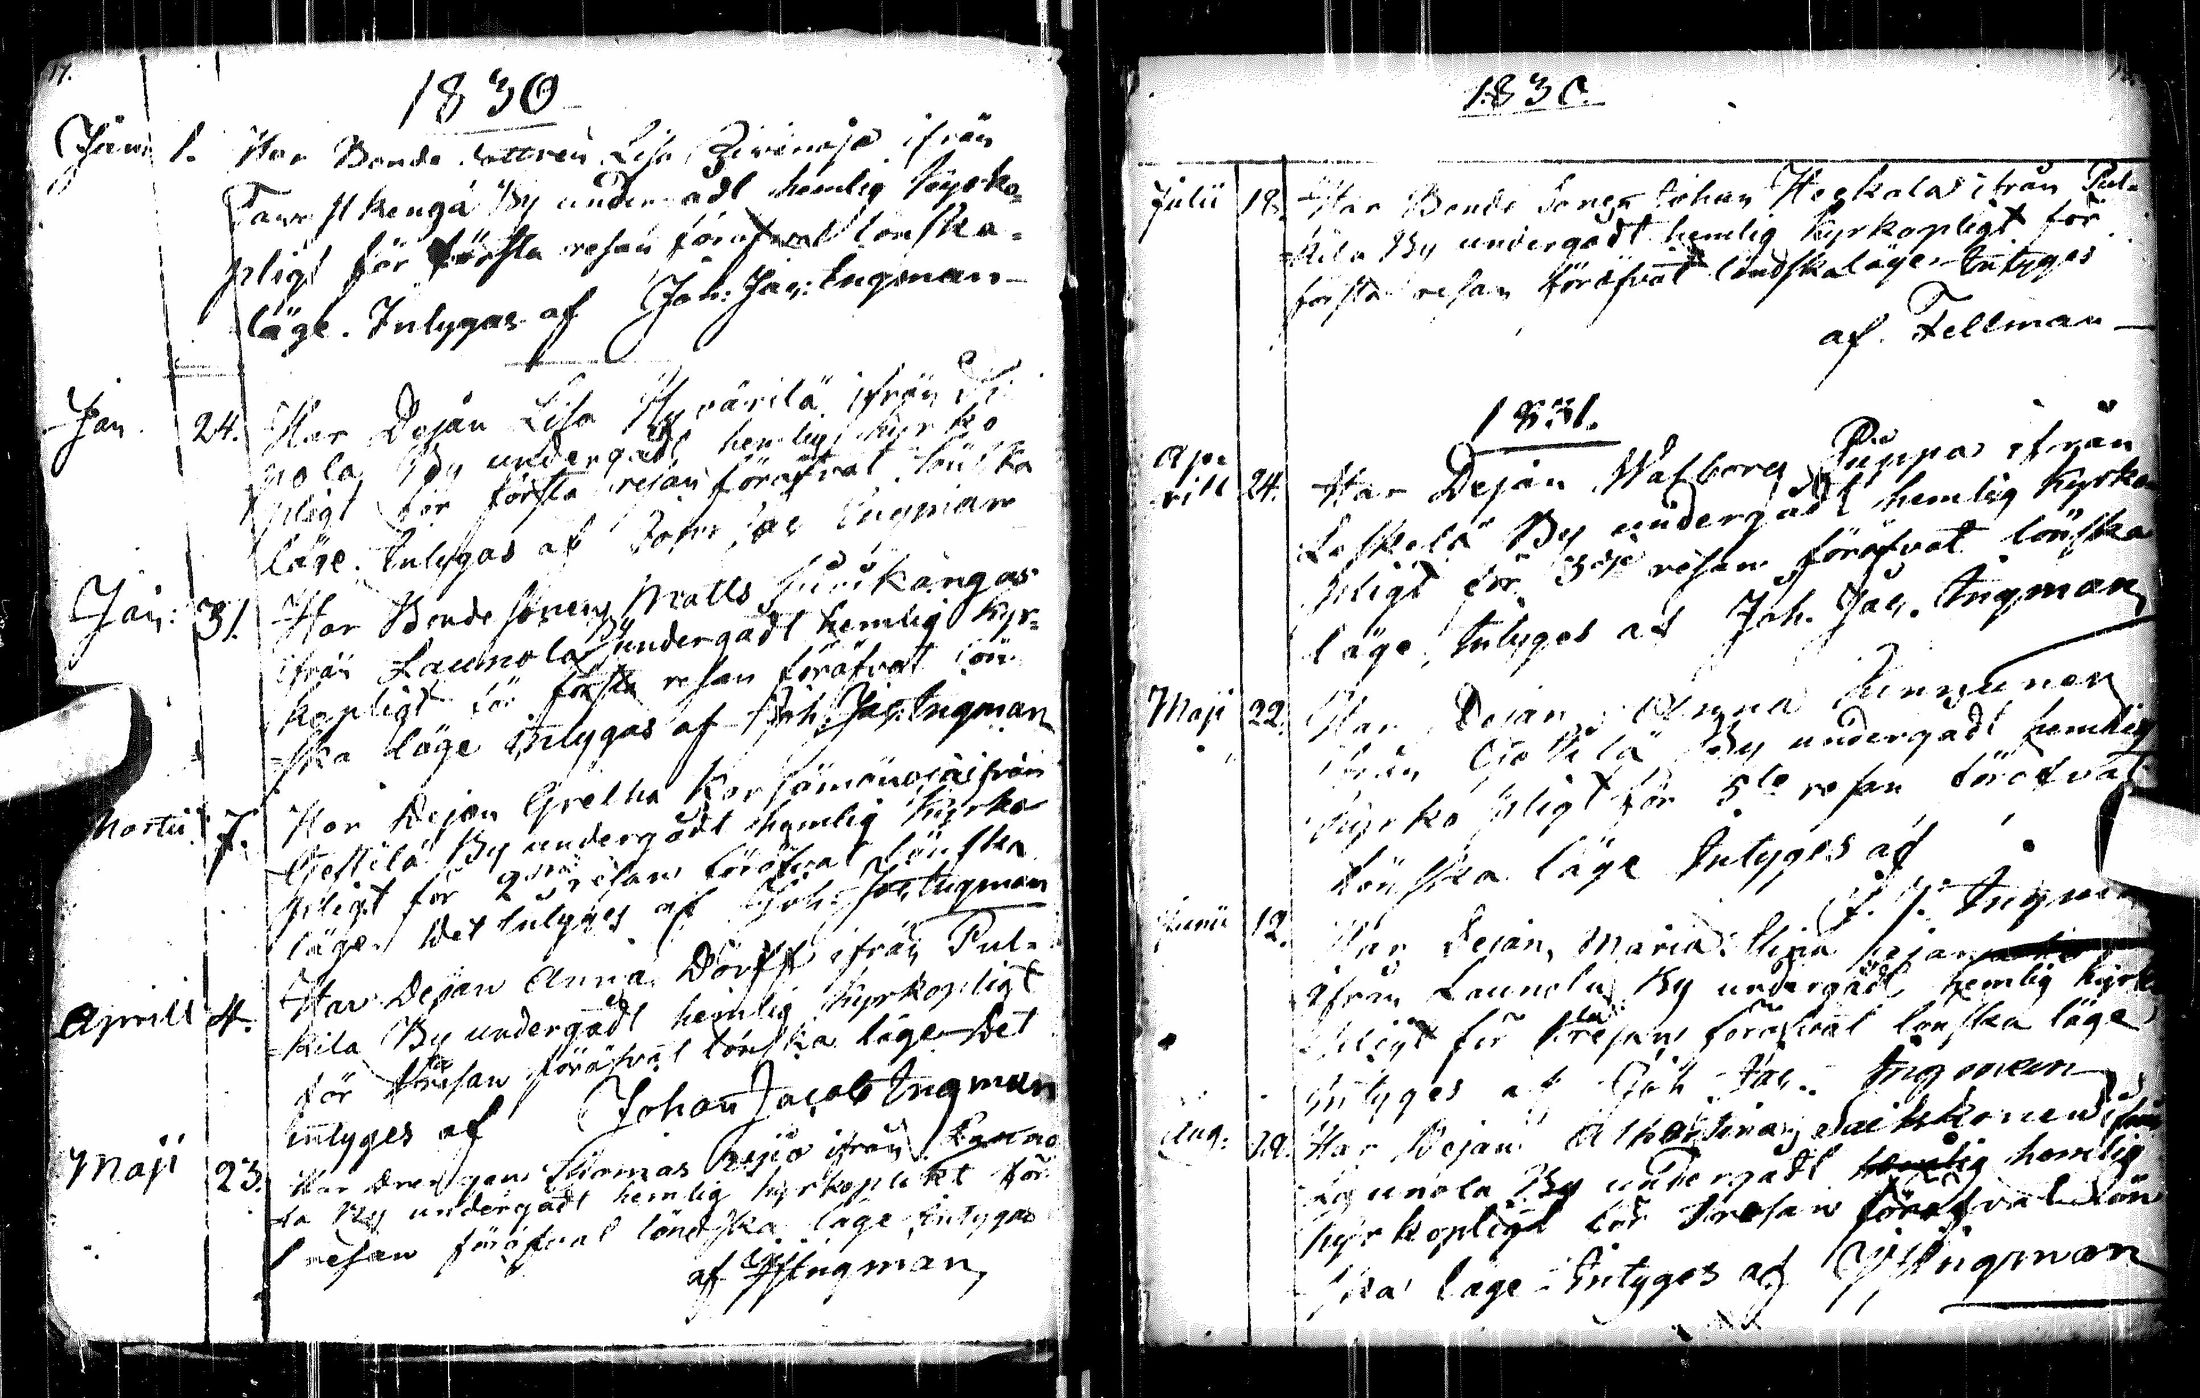 17.
1830
Janu 1. Har Bonde dottren Lisa ifrån
By undergådt hemlig kyrko=
pligt för första resan föröfvat lönska=
läge. Intygas af Joh: Jac: Ingman
Jan. 24. Har Dejan Lisa Hyvärilä ifrån Pi
pola By undergådt hemlig kyrko
pligt för första resan föröfvat lönska
läge. Intygas af Joh: Jac Ingman
Jan: 31. Har Bonde sonen Matts
ifrån Launola By undergådt hemlig kyr=
kopligt för första resan föröfvat lön
=ska läge Intygas af Joh: Jac: Ingman
Martii 7. Har Dejan Gretha ifrån
Gestilä By undergådt hemlig kyrko
pligt för 2dra resan föröfvat lönska
läge. Det Intyges af Joh: Jac: Ingman
Aprill 4. Har Dejan Anna Dorff ifrån Pul=
=kila By undergådt hemlig kyrkopligt
för 1sta resan föröfvat lönska läge Det
intyges af Johan Jacob Ingman
Maji 23. Har Drengen Thomas ifrån Launo
la By undergådt hemlig kyrkoplikt för
1 resan föröfvat löndska läge Intygas
af JJIngman,
1830.
Julii 18. Har Bonde Sonen Johan Heckala ifrån Pul=
=kila By undergådt hemlig kyrkopligt för
första resan föröfvat löndskaläge Intyges
af. Fellman
1831.
Ap=
rill 24. Har Dejan Walborg Puppa ifrån
Leskelä By undergådt hemlig kyrko
pligt för 3dje resan föröfvat lönska
läge, Intyges af Joh. Jac. Ingman,
Maji 22. Har Dejan Anna Junnunen
ifrån By undergådt hemlig
kyrko pligt för 5te resan föröfvat
lönska läge Intyges af
J. J. Ingman
Junii 12. Har Dejan, Maria Stina
ifrån Launola By undergådt hemlig kyrko
pligt för 1sta resan föröfvat lönska läge
Intyges af Joh Jac. Ingman
Aug. 28. Har Dejan Albertina ifrån
Launola By undergådt hemlig hemlig
kyrkopligt för 1 resan föröfvat lön
ska läge Intyges af JJIngman